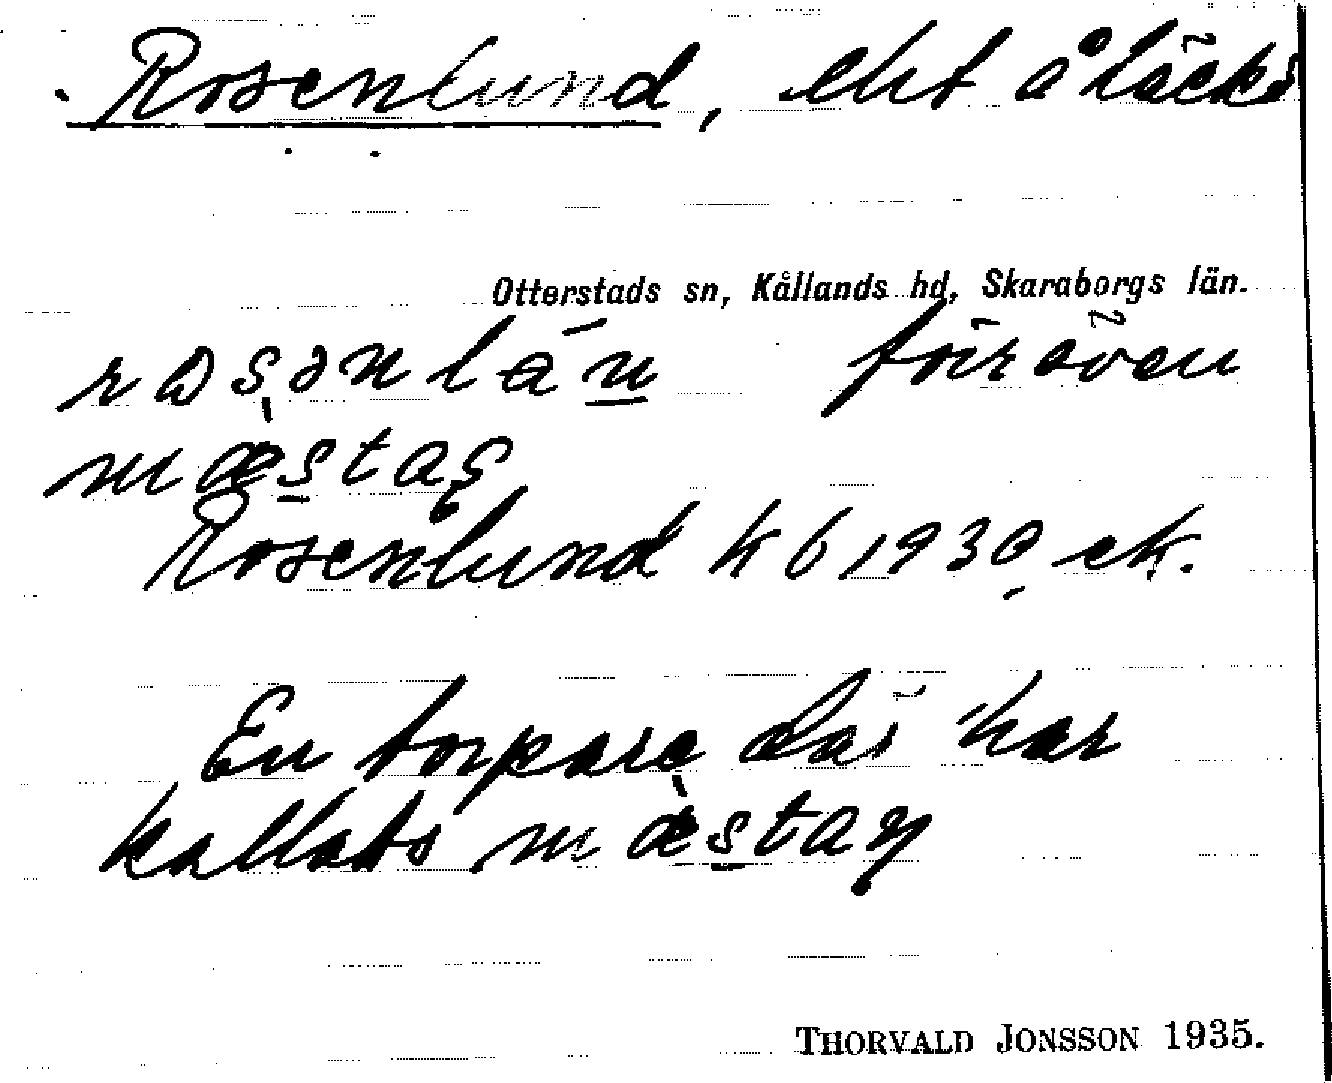 Rosenlund, ebt å Läckö
Otterstads sn, Kållands hd, Skaraborgs län.
förr även
Rosenlund kb 1930 ek.
En torpare där har
kallats mæstaɳ
THORVALD JONSSON 1935.